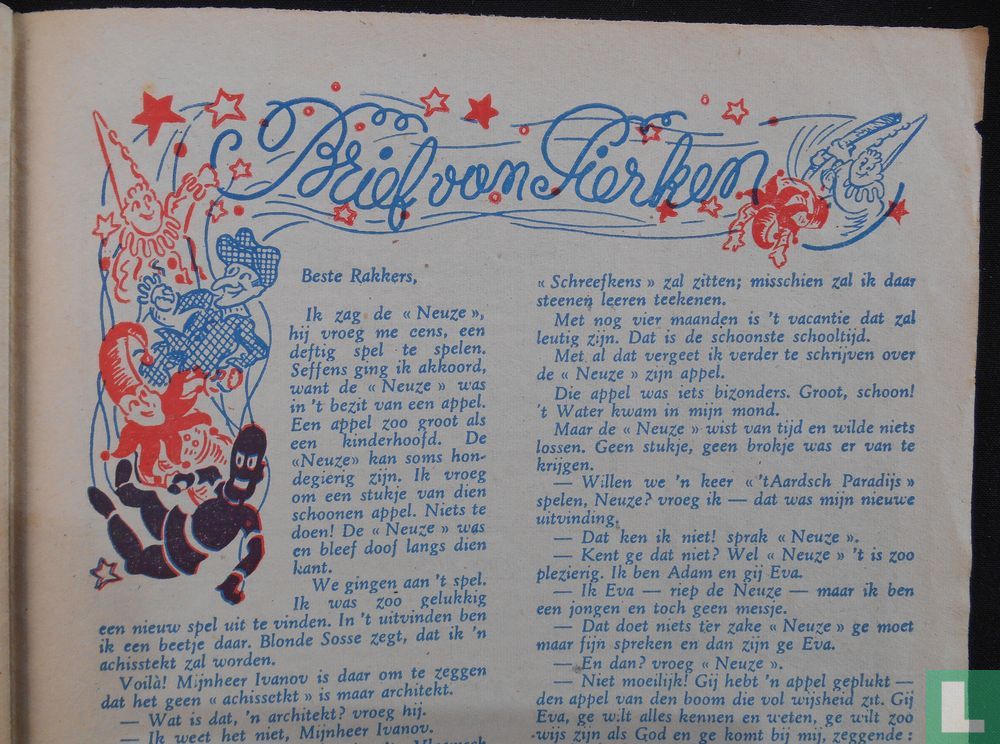 Brief van Pierken
Beste Rakkers,
Ik zag de « Neuze »,
hij vroeg me eens, een
deftig spel te spelen.
Seffens ging ik akkoord,
want de « Neuze » was
in 't bezit van een appel.
Een appel zoo groot als
een kinderhoofd. De
«Neuze» kan soms hon-
degierig zijn. Ik vroeg
om een stukje van dien
schoonen appel. Niets te
doen! De « Neuze » was
en bleef doof langs dien
kant.
We gingen aan 't spel.
Ik was zoo gelukkig
een nieuw spel uit te vinden. In 't uitvinden ben
ik een beetje daar. Blonde Sosse zegt, dat ik 'n
achisstekt zal worden.
Voilà! Mijnheer Ivanov is daar om te zeggen
dat het geen « achissetkt » is maar architekt.
— Wat is dat, 'n architekt? vroeg hij.
— Ik weet het niet, Mijnheer Ivanov.
« Schreefkens » zal zitten; misschien zal ik daar
steenen leeren teekenen.
Met nog vier maanden is 't vacantie dat zal
leutig zijn. Dat is de schoonste schooltijd.
Met al dat vergeet ik verder te schrijven over
de « Neuze » zijn appel.
Die appel was iets bizonders. Groot, schoon!
't Water kwam in mijn mond.
Maar de « Neuze » wist van tijd en wilde niets
lossen. Geen stukje, geen brokje was er van te
krijgen.
— Willen we 'n keer « 'tAardsch Paradijs »
spelen, Neuze? vroeg ik — dat was mijn nieuwe
uitvinding.
— Dat ken ik niet! sprak « Neuze ».
— Kent ge dat niet? Wel « Neuze » 't is zoo
plezierig. Ik ben Adam en gij Eva.
— Ik Eva — riep de Neuze — maar ik ben
een jongen en toch geen meisje.
— Dat doet niets ter zake « Neuze » ge moet
maar fijn spreken en dan zijn ge Eva.
— En dan? vroeg « Neuze ».
— Niet moeilijk! Gij hebt 'n appel geplukt —
den appel van den boom die vol wijsheid zit. Gij
Eva, ge wilt alles kennen en weten, ge wilt zoo
wijs zijn als God en ge komt bij mij, zeggende :
L